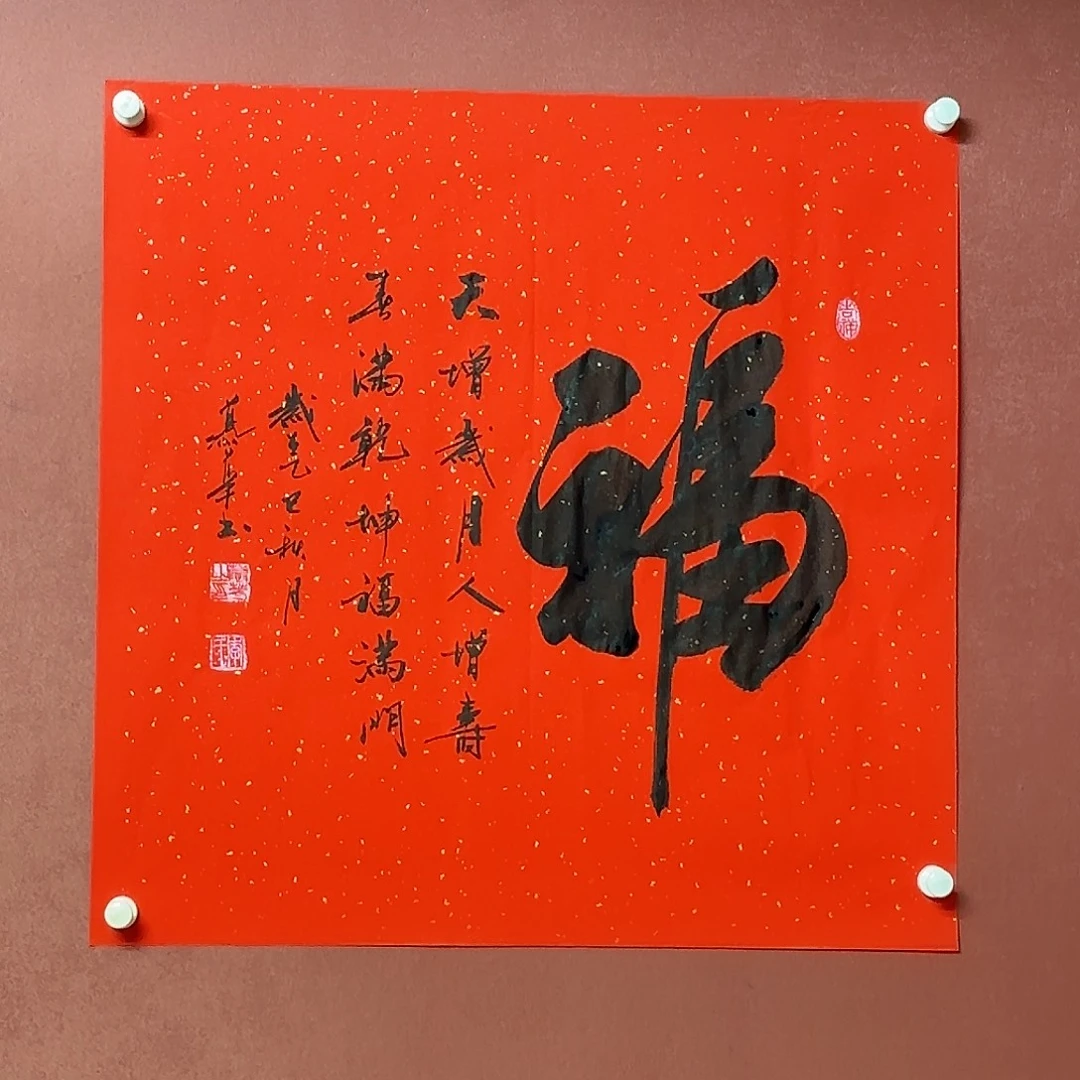 福
天增歲月人增壽
春滿乾坤福滿門
歲在乙巳秋月
慕華书
吉祥